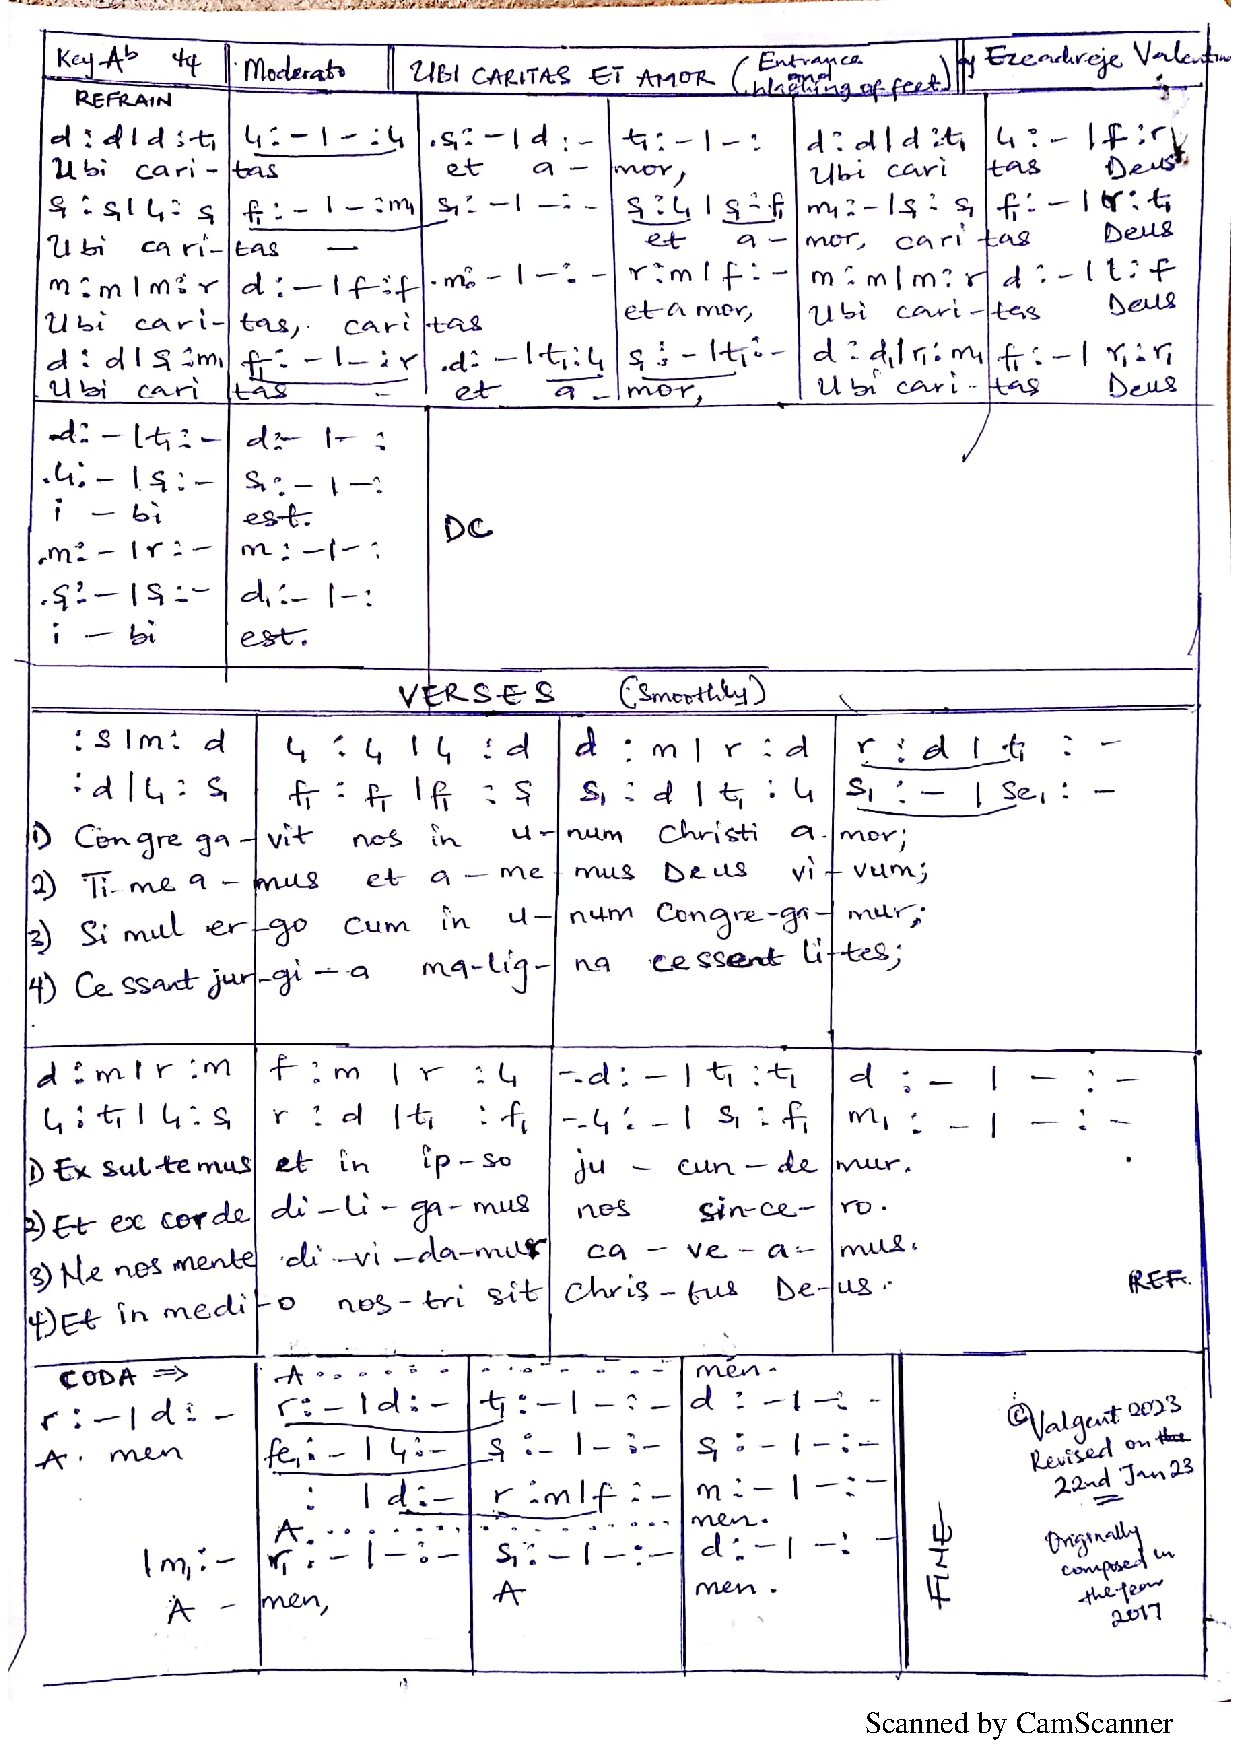 Key Ab 44 Moderato UBI CARITAS ET AMOR (Entrance and Washing of feet) by Ezeadireje Valentine
REFRAIN
d : d | d : t₁ l₁ : - | - : l₁ .s₁ : - | d : - t₁ : - | - : d : d | d : t₁ l₁ : - | f : r
Ubi cari- tas et a- mor, Ubi cari tas Deus
s₁ : s₁ | l₁ : s₁ f₁ : - | - : m₁ s₁ : - | - : - s₁ : l₁ | s₁ : f₁ m₁ : - | s₁ : s₁ f₁ : - | r : t₁
Ubi cari- tas - et a- mor, caritas Deus
m : m | m : r d : - | f : f .m : - | - : - r : m | f : - m : m | m : r d : - | l : f
Ubi cari- tas, caritas et amor, Ubi cari- tas Deus
d : d | s₁ : m₁ f₁ : - | - : r .d : - | t₁ : l₁ s₁ : - | t₁ : - d : d₁ | r₁ : m₁ f₁ : - | r₁ : r₁
Ubi cari tas - et a- mor, Ubi cari- tas Deus
.d : - | t₁ : - d : - | - :
.l₁ : - | s₁ : - s₁ : - | - :
i - bi est.
DC
.m : - | r : - m : - | - :
.s₁ : - | s₁ : - d₁ : - | - :
i - bi est.
VERSES (Smoothly)
: s | m : d l₁ : l₁ | l₁ : d d : m | r : d r : d | t₁ : -
: d | l₁ : s₁ f₁ : f₁ | f₁ : s₁ s₁ : d | t₁ : l₁ s₁ : - | se₁ : -
1) Congre ga- vit nos in u- num Christi a- mor;
2) Ti me a- mus et a- me- mus Deus vi- vum;
3) Si mul er- go cum in u- num Congre-ga- mur;
4) Ce ssant jur- gi- a ma-lig- na cessent li- tes;
d : m | r : m f : m | r : l₁ -.d : - | t₁ : t₁ d : - | - : -
l₁ : t₁ | l₁ : s₁ r : d | t₁ : f₁ -.l₁ : - | s₁ : f₁ m₁ : - | - : -
1) Ex sul te mus et in ip-so ju - cun - de mur.
2) Et ex corde di-li-ga-mus nos sin-ce- ro.
3) Ne nos mente di-vi-da-mur ca - ve - a- mus.
4) Et in medi- o nos-tri sit Chris-tus De-us.
REF.
CODA ⇒ A. . . . . . . . . . . men.
r : - | d : - r : - | d : - t₁ : - | - : - d : - | - : -
A. men fe₁ : - | l₁ : - s₁ : - | - : - s₁ : - | - : -
: | d : - r : m | f : - m : - | - : -
A. . . . . . . . . . . men.
| m₁ : - r₁ : - | - : - s₁ : - | - : - d : - | - : -
A - men, A men.
FINE
© Valgent 2023
Revised on the
22nd Jan 23
Originally
composed in
the year
2017
Scanned by CamScanner